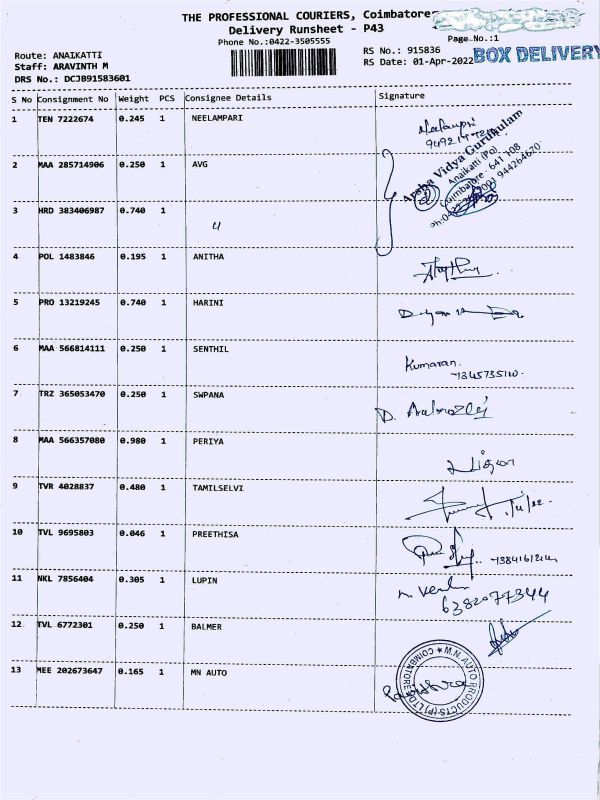 THE PROFESSIONAL COURIERS, Coimbatore
Delivery Runsheet - P43
Phone No.:0422-3505555
Page No.:1
BOX DELIVERY
Route: ANAIKATTI
Staff: ARAVINTH M
DRS No.: DCJB91583601
RS No.: 915836
RS Date: 01-Apr-2022
S No Consignment No Weight PCS Consignee Details Signature
1 TEN 7222674 0.245 1 NEELAMPARI Neelampri
Arsha Vidya Gurukulam
Anaikatti (Po)
Coimbatore - 641 108
2 MAA 285714906 0.250 1 AVG
3 HRD 383406987 0.740 1
4 POL 1483846 0.195 1 ANITHA
5 PRO 13219245 0.740 1 HARINI
6 MAA 566814111 0.250 1 SENTHIL Kumaran.
7345735110.
7 TRZ 365053470 0.250 1 SWPANA
8 MAA 566357080 0.980 1 PERIYA
9 TVR 4028837 0.480 1 TAMILSELVI
10 TVL 9695803 0.046 1 PREETHISA
11 NKL 7856404 0.305 1 LUPIN
6382077344
12 TVL 6772301 0.250 1 BALMER
13 MEE 202673647 0.165 1 MN AUTO
M.N. AUTO PRODUCTS (P) LTD
COIMBATORE